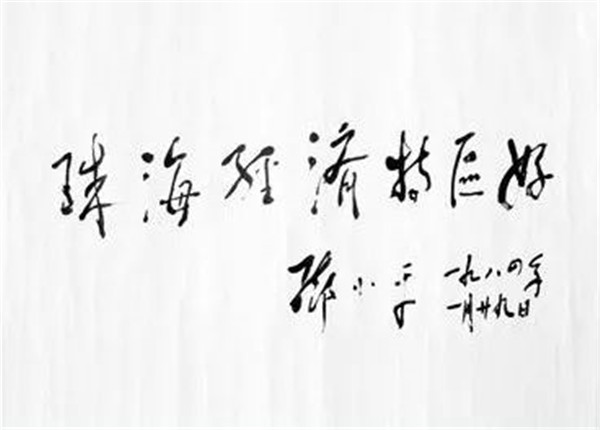 珠海經濟特區好
鄧小平
一九八四年
一月廿九日